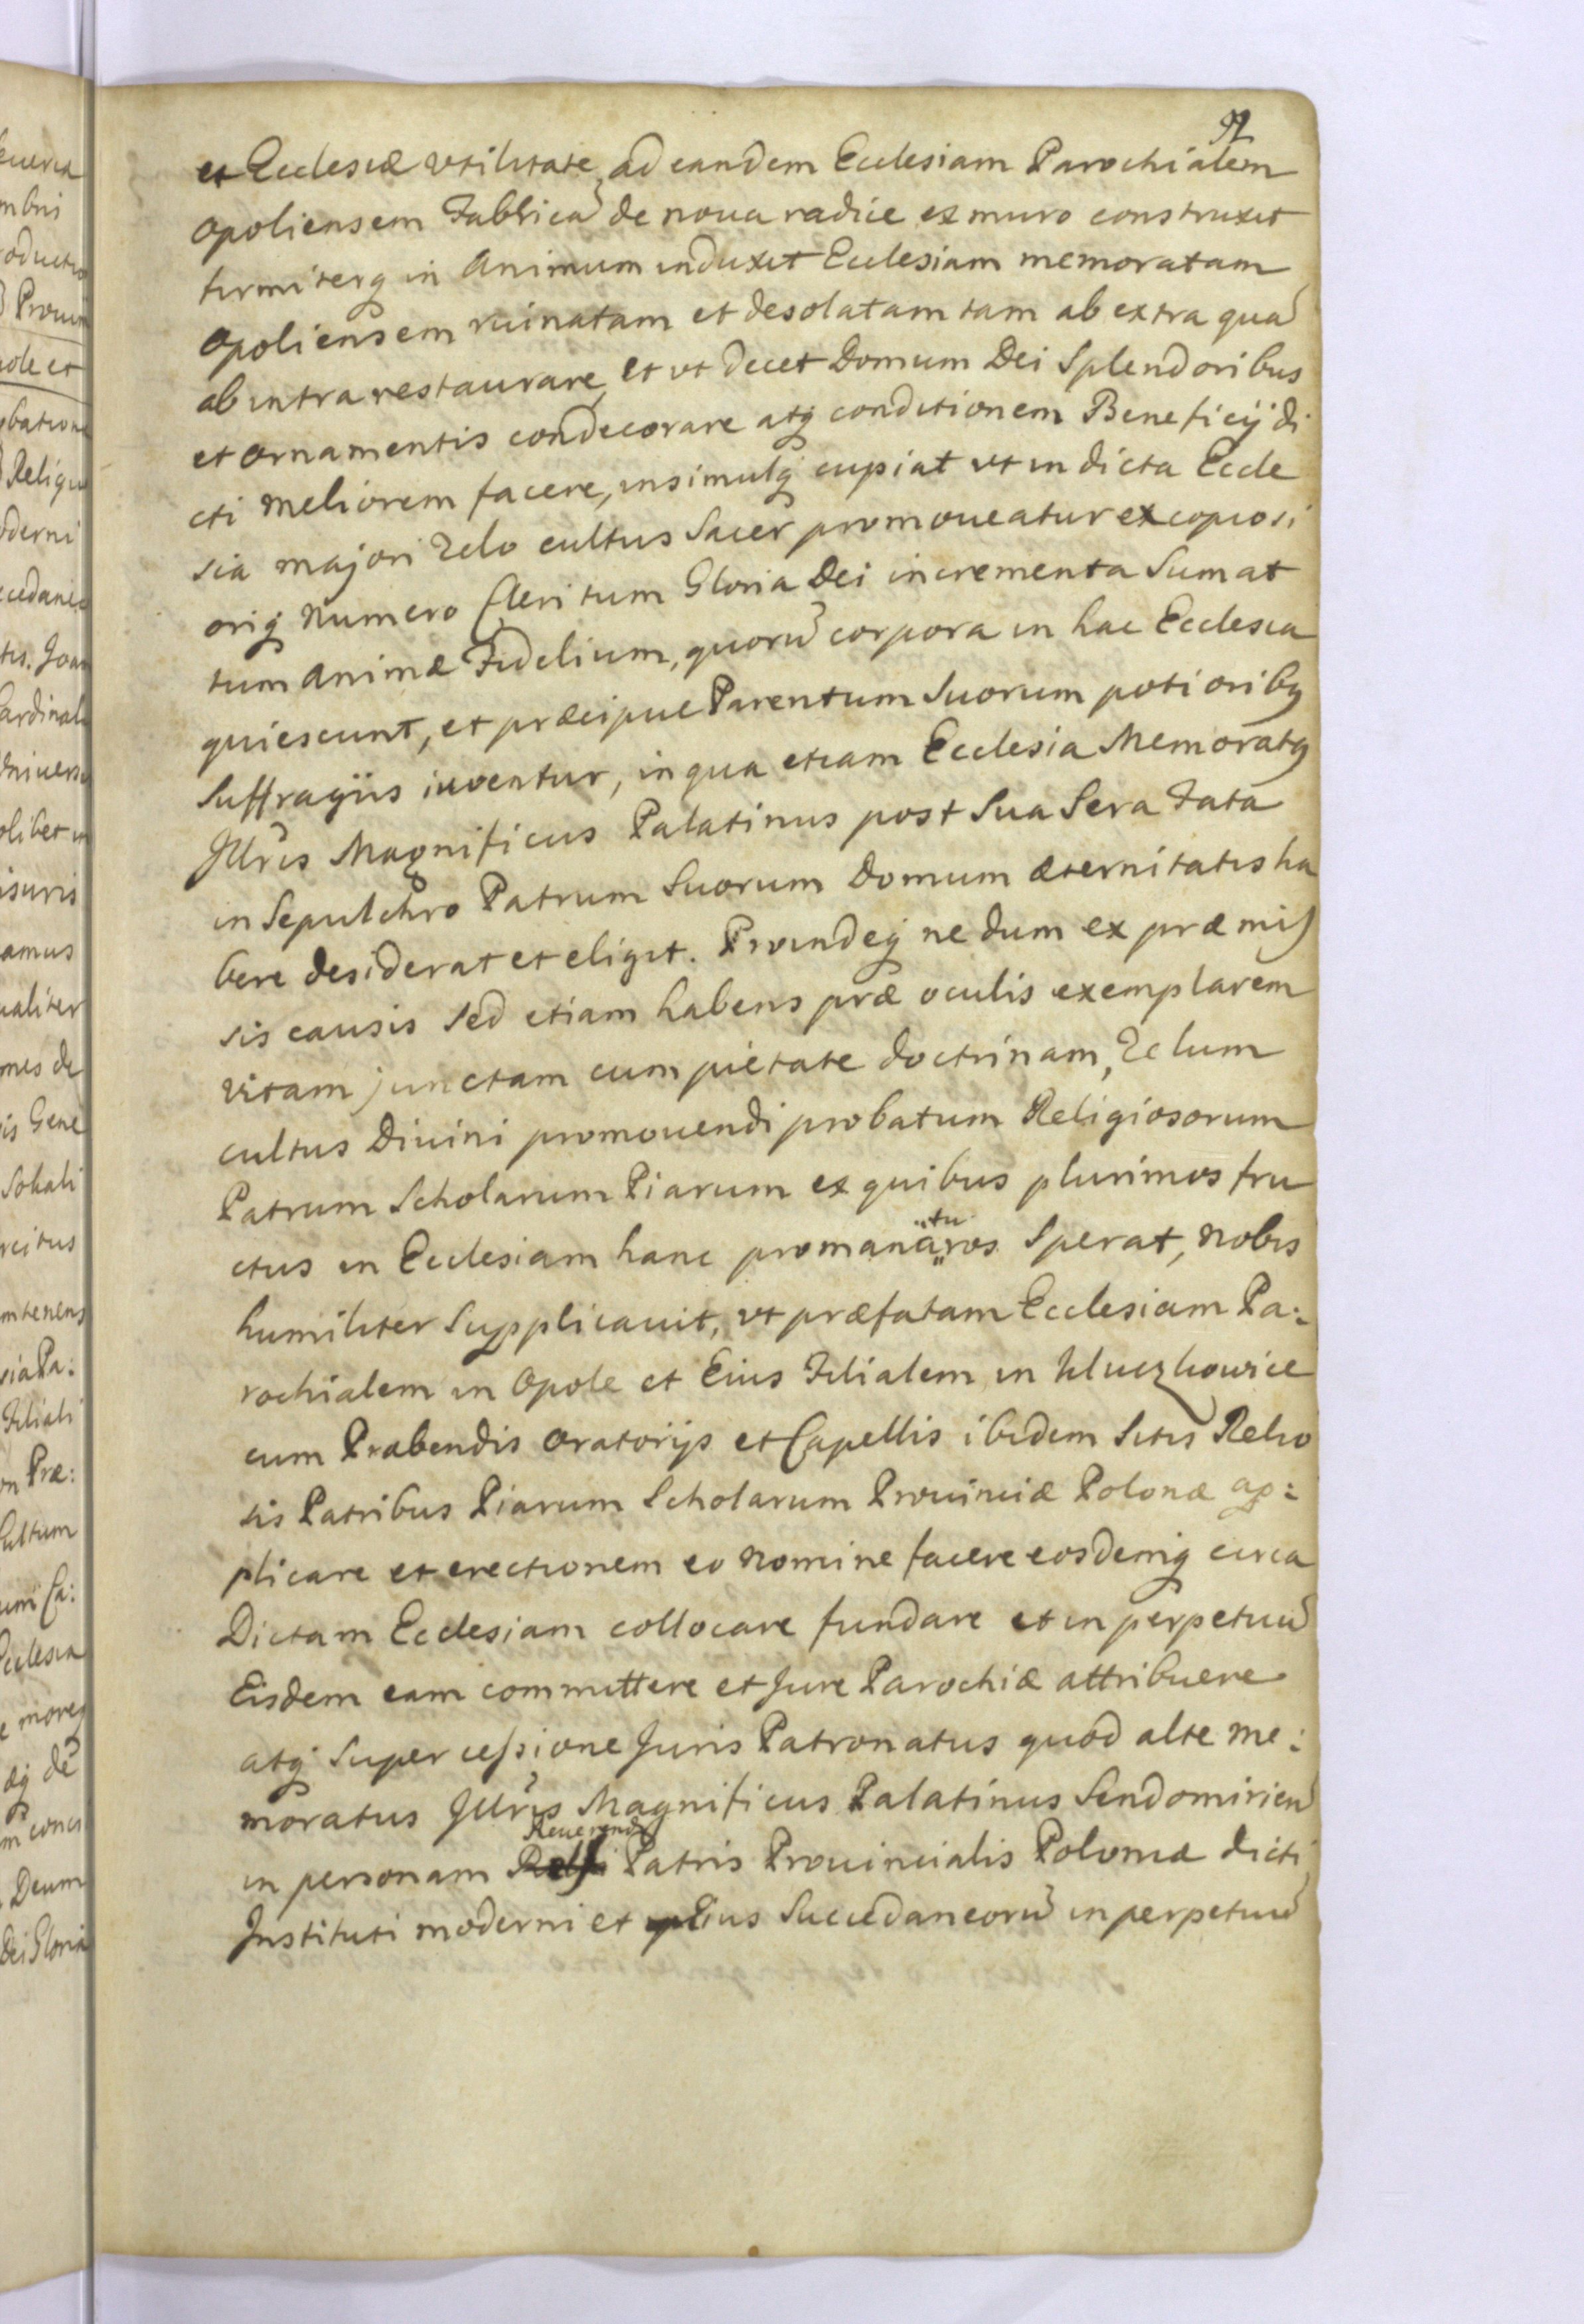 92
et Ecclesiæ vtilitate, ad eandem Ecclesiam Parochialem
Opoliensem Fabbricã de noua radice ex muro construxit
firmiterq in Animum induxit Ecclesiam memoratam
Opoliensem ruinatam et desolatam tam ab extra quã
ab intra restaurare, et vt decet Domum Dei Splendoribus
et Ornamentis condecorare atq conditionem Beneficij di
cti meliorem facere, insimulq cupiat vt in dicta Eccle
sia majori Zelo cultus Sacer promoueatur ex copiosi
oriq numero Cleri tum Gloria Dei incrementa Sumat
tum Animæ Fidelium, quorũ corpora in hac Ecclesia
quiescunt, et præcipue Parentum Suorum potioribq
Suffragiis iuventur, in qua etiam Ecclesia Memoratq
Jllr̃is Magnificus Palatinus post Sua Sera Fata
in Sepulchro Patrum Suorum Domum æternitatis ha
bere desiderat et eligit. Proindeq ne dum ex præmis
sis causis sed etiam habens præ oculis exemplarem
vitam junctam cum pietate doctrinam, Zelum
cultus Diuini promouendi probatum Religiosorum
Patrum Scholarum Piarum ex quibus plurimos fru
ctus in Ecclesiam hanc promanaturos Sperat, nobis
humiliter Supplicauit, vt præfatam Ecclesiam Pa:
rochialem in Opole et Eius Filialem in Kluczkowice
cum Præbendis Oratorijs et Capellis ibidem Sitis Relio
sis Patribus Piarum Scholarum Prouinciæ Polonæ ap:
plicare et erectionem eo nomine facere eosdemq circa
Dictam Ecclesiam collocare fundare et in perpetuũ
Eisdem eam committere et Jure Parochiæ attribuere
atq Super cessione Juris Patronatus quod alte me:
moratus Jllr̃is Magnificus Palatinus Sendomirien
in personam Reuerend Patris Prouincialis Poloniæ dicti
Instituti moderni et Eius Succedaneorũ in perpetuũ